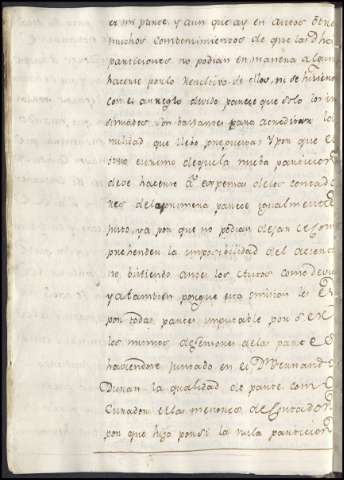 en mi parte. y aun que ay en autos otros
muchos comtenimientos de que las dhas
particiones no podian en manera alguna
hacerse por lo de ellos, ni se hicieron
con el arreglo devido parece que solo los in
sinuados son bastantes para acreditar la
nulidad que llebo propuesta: Y por que el
otro extremo de que la nueba particion
deve hacerse a expensas de los contado
res de la primera parece igualmente
justo, ya por que no podian dejar de com
prehender la imposibilidad del acierto
no teniendo ante los como devia
y a tambien porque esta omision les es
por todas partes imputable por ser
los mismos defensores de la parte
haviendose juntado en el Dr Fernando
Duran la qualidad de parte como
Curador de la menor y de Contador
por que hizo por si la nula particion